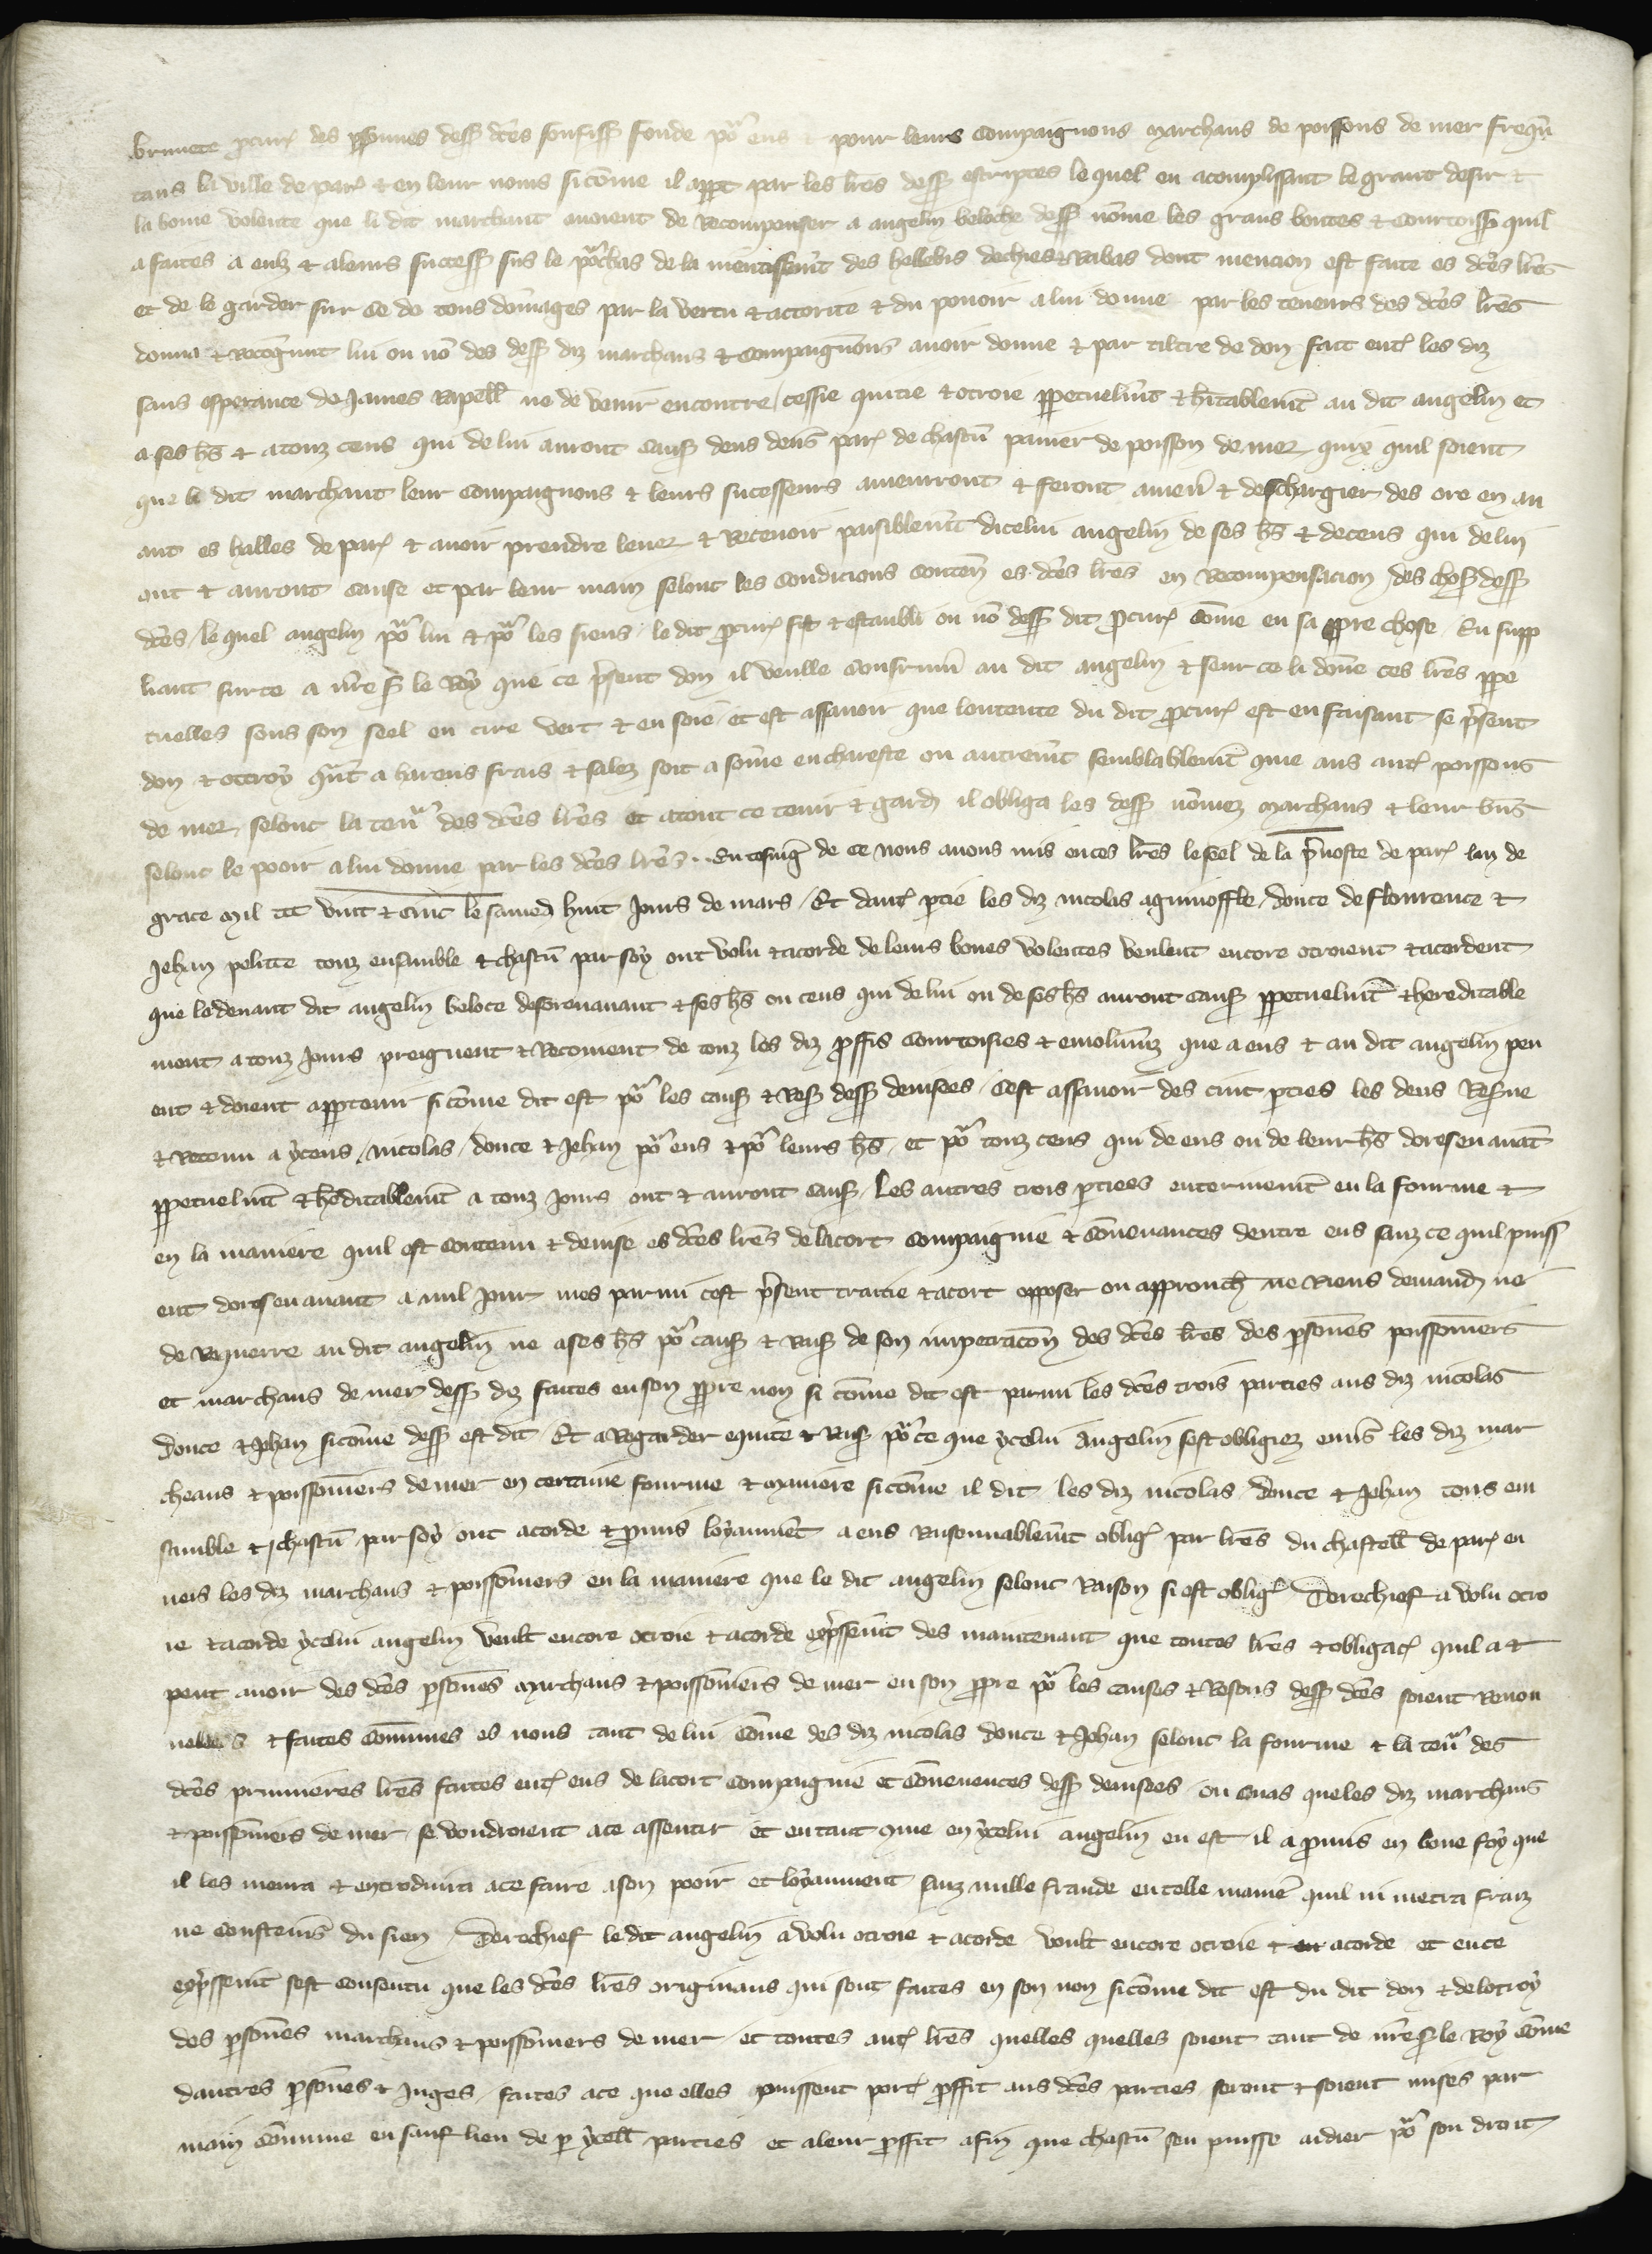 brunete procur des personnes dess dctes souffiss fonde por eus et pour leurs compaignons marchans de poissons de mer frequen
tans la ville de par et en leur noms si comme il appt par les lres dess escriptes le quel en acomplissant le grant desir et
la bonne volente que li dit marchant avoient de recompenser a angelin beloche dess nomme les grans bontes et courtoiss quil
a faites a eulz et a leurs success sus le porchas de la mentissemt des hellebis dechies rabas dont mencion est faite es dctes lres
et de le garder sur ce de tous domages par la vertu et actorite et du pouoir a lui donne par les teneurs des dctes lres
donna et recognut lui ou no des dess diz marchans et compaignons avoir donne et par tiltre de don fait ent les diz
sans esperance de james rapell ne de venir encontre cessie quitie et otroie perpetuelmt et hitablement au dit angelin et
a ses hs et a touz ceus qui de lui auront caus deus deus par de chascu panier de poisson de mer quiex quil soient
que li dit marchant leur compaignons et leurs sucesseurs amenrront et feront amen et deschargier des ore en au
ant es halles de par et avoir prendre lever et recevoir paisiblemt dicelui angelin de ses hs et de ceus qui de lui
ont et auront cause et par leur main selont les condicions conten es dctes lres en recompensacion des chos dess
dctes le quel angelin por lui et por les siens le dit procur fist et establi ou no dess dit procur comme en sa propre chose En supp
liant sur ce a nre s le roy que ce present don il veulle confirm au dit angelin et seur ce li donne ces lres perpe
tuelles sous son seel en cire vert et en soie et est assavoir que lentente du dit procur est en faisant se present
don et ottroy quat a harens frais et salez soit a somme en chareste ou autremt semblablement que aus aut poissons
de mer selont la tenr des dctes lres et a tout ce tenir et gard il obliga les dess nommez marchans et leur bns
selont le pooir a lui donne par les dctes lres En tesmig de ce nous avons mis en ces lres le seel de la prevoste de par lan de
grace mil ccc vint et cinc le samed huit jours de mars Et daut partie les diz nicolas aguinoffle donce de flourence et
Jehan pelitte touz ensamble et chascu par soy ont volu et acorde de leurs bones volentes veulent encore otroient et acordent
que le devant dit angelin beloce desorenavant et ses hs ou ceus qui de lui ou de ses hs auront caus perpetuelmt et hereditable
ment a touz jours preignent et recoivent de touz les diz proffis courtoisies et emolumz que a eus et au dit angelin peu
ent et doient appartenir si comme dit est por les caus et res dess devisees Cest assavoir des cinc parties les deus reserve
et retenu a yceus nicolas donce et Jehan por eus et por leurs hs et por touz ceus qui de eus ou de leur hs doresenavat
perpetuelmt et heditablemt a touz jours ont et auront caus Les autres trois parties enterinemt en la fourme et
en la maniere quil est contenu et devise es dctes lres de lacort compaignie et convenances dentre eus sanz ce quil puiss
ent doresenavant a nul jour mes parmi cest present traitie et acort opposer ou approuch ne riens demand ne
de requerre au dit angelin ne a ses hs por caus et rais de son impetracon des dctes lres des personnes poissonniers
et marchans de mer dess diz faites en son propre non si comme dit est parmi les dctes trois parties aus diz nicolas
donce et Jehan si comme dess est dit Et a regarder equite et rais por ce que ycelui angelin sest obligiez envers les diz mar
cheans et poissonniers de mer en certaine fourme et maniere si comme il dit les diz nicolas donce et Jehan tous en
samble et chascu par soy ont acorde et promis loyaument a eus raisonnablemt oblig par lres du chastell de par en
vers les diz marchans et poissonniers en la maniere que le dit angelin selont raison si est oblig Derechief a volu otro
ie et acorde ycelui angelin veult encore otroie et acorde expressemt des maintenant que toutes lres et obligac quil a et
peut avoir des dctes personnes marchans et poissonniers de mer en son propre por les causes et resons dess dctes soient renou
velles et faites communes es nons tant de lui comme des diz nicolas donce et Jehan selont la fourme et la tenr des
dctes premieres lres faites ent eus de lacort compaignie et convenences dess devisees ou cuas que les diz marchans
et poissonniers de mer se voudroient a ce assentir et en tant que en ycelui angelin en est il a promis en bone foy que
il les menra et entroduira a ce faire a son pooir et loyaument sanz nulle fraude en telle manie quil ni metra fraiz
ne coustemens du sien Derechief le dit angelin a volu otroie et acorde voult encore otroie et acorde et en ce
expressemt sest consentu que les dctes lres originaus qui sont faites en son non si comme dit est du dit don et de lotroy
des personnes marchans et poissonniers de mer et toutes aut lres quelles quelles soient tant de nre s le roy comme
dautres personnes et juges faites a ce que elles puissent port proffit aus dctes parties seront et soient mises par
main commune en sauf lieu de par ycell parties et a leur proffit afin que chascu sen puisse aidier por son droit